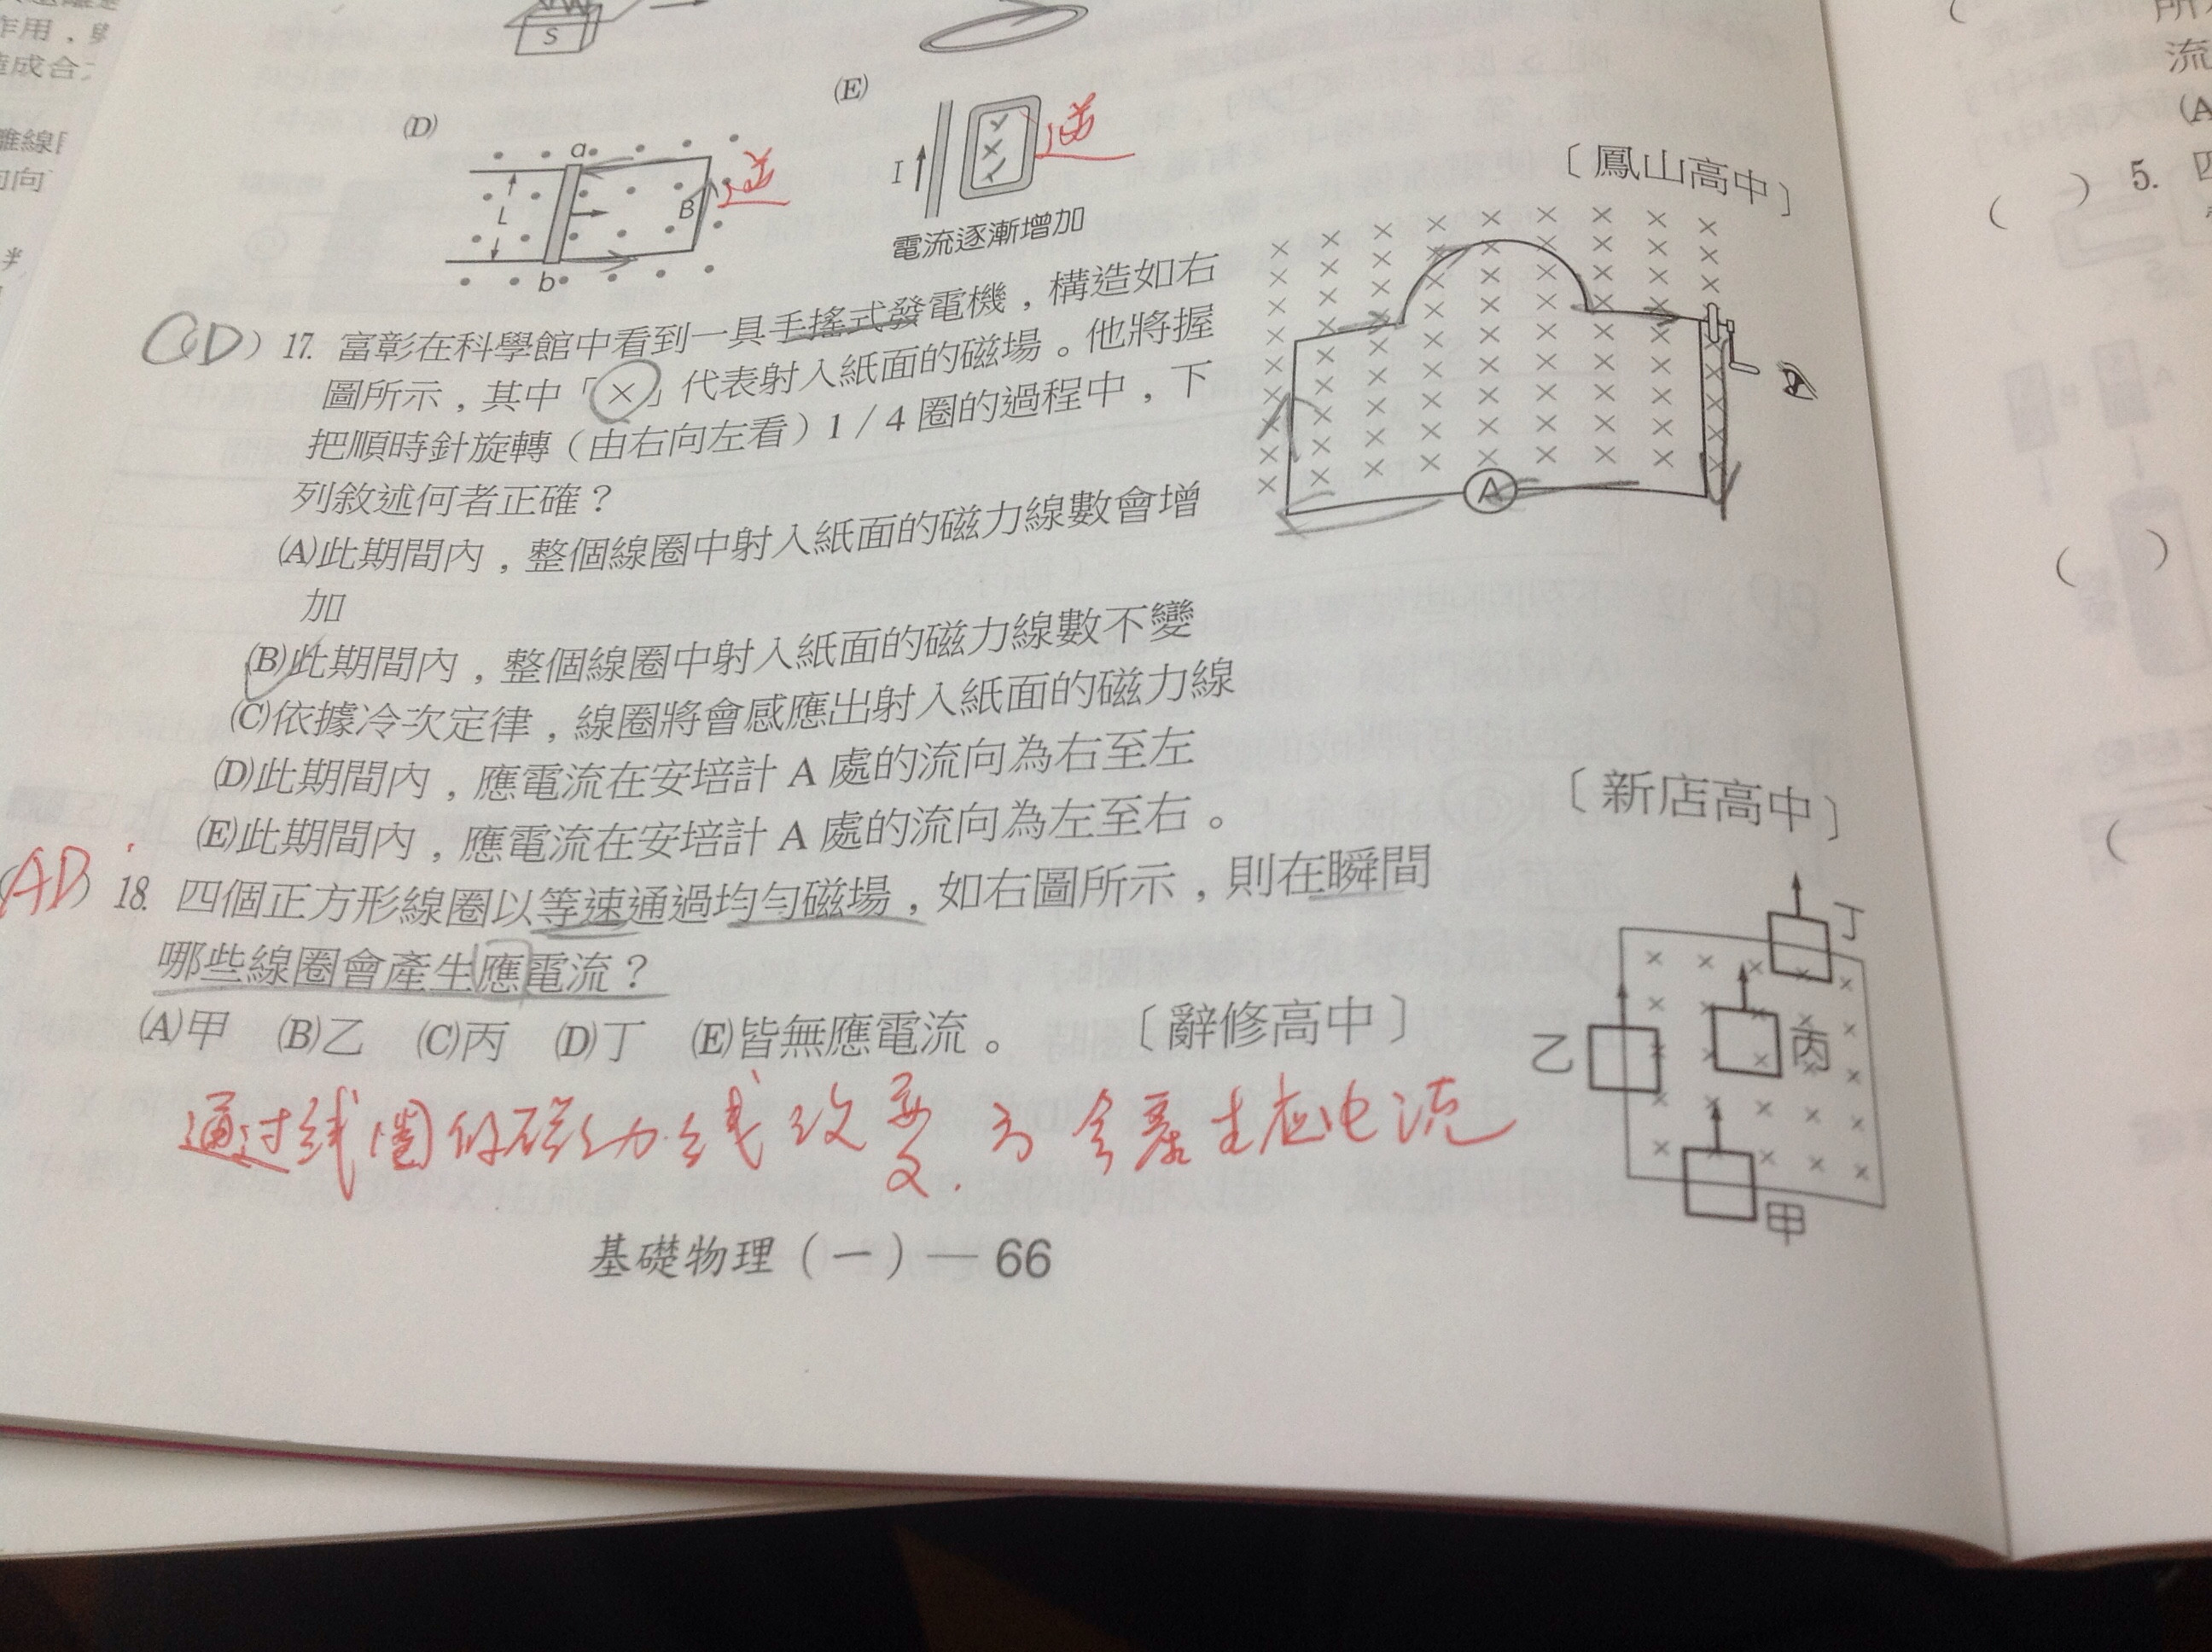 作用，
離線
S
(D)
a
L
B
b
逆
(E)
I
逆
電流逐漸增加
〔鳳山高中〕
(CD) 17. 富彰在科學館中看到一具手搖式發電機，構造如右
圖所示，其中「×」代表射入紙面的磁場。他將握
把順時針旋轉（由右向左看）1／4 圈的過程中，下
列敘述何者正確？
(A)此期間內，整個線圈中射入紙面的磁力線數會增
加
(B)此期間內，整個線圈中射入紙面的磁力線數不變
(C)依據冷次定律，線圈將會感應出射入紙面的磁力線
(D)此期間內，應電流在安培計 A 處的流向為右至左
(E)此期間內，應電流在安培計 A 處的流向為左至右。
〔新店高中〕
A
(AD) 18. 四個正方形線圈以等速通過均勻磁場，如右圖所示，則在瞬間
哪些線圈會產生應電流？
(A)甲 (B)乙 (C)丙 (D)丁 (E)皆無應電流。 〔辭修高中〕
丁
乙
丙
甲
通过线圈的磁力线改变.才会產生应电流
基礎物理（一）— 66
流
(A
( ) 5.
( )
(